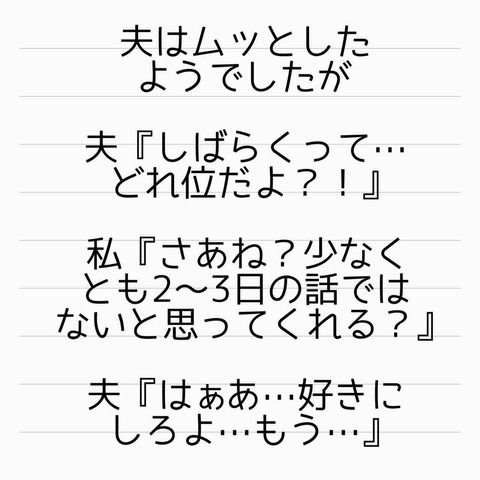 夫はムッとした
ようでしたが
夫『しばらくって…
どれ位だよ？！』
私『さあね？少なく
とも2〜3日の話では
ないと思ってくれる？』
夫『はぁあ…好きに
しろよ…もう…』